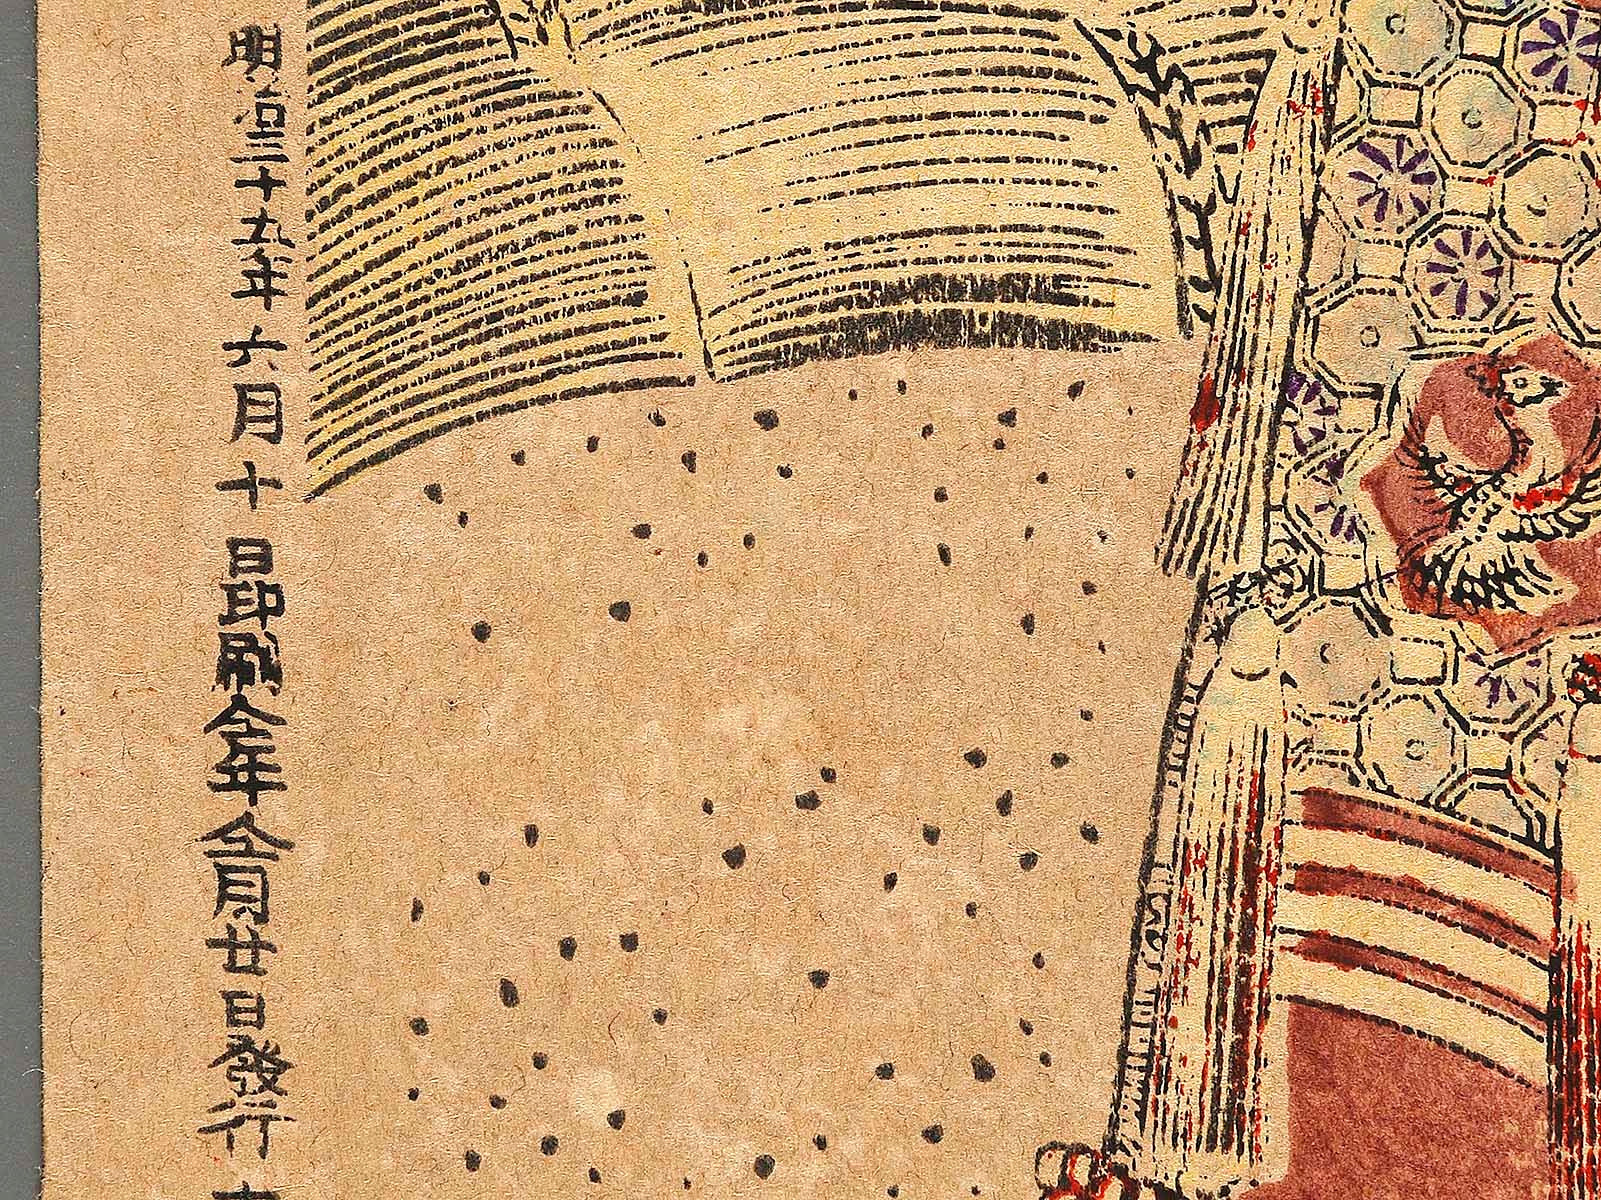 明治三十九年六月十日印刷仝年仝月廿日發行